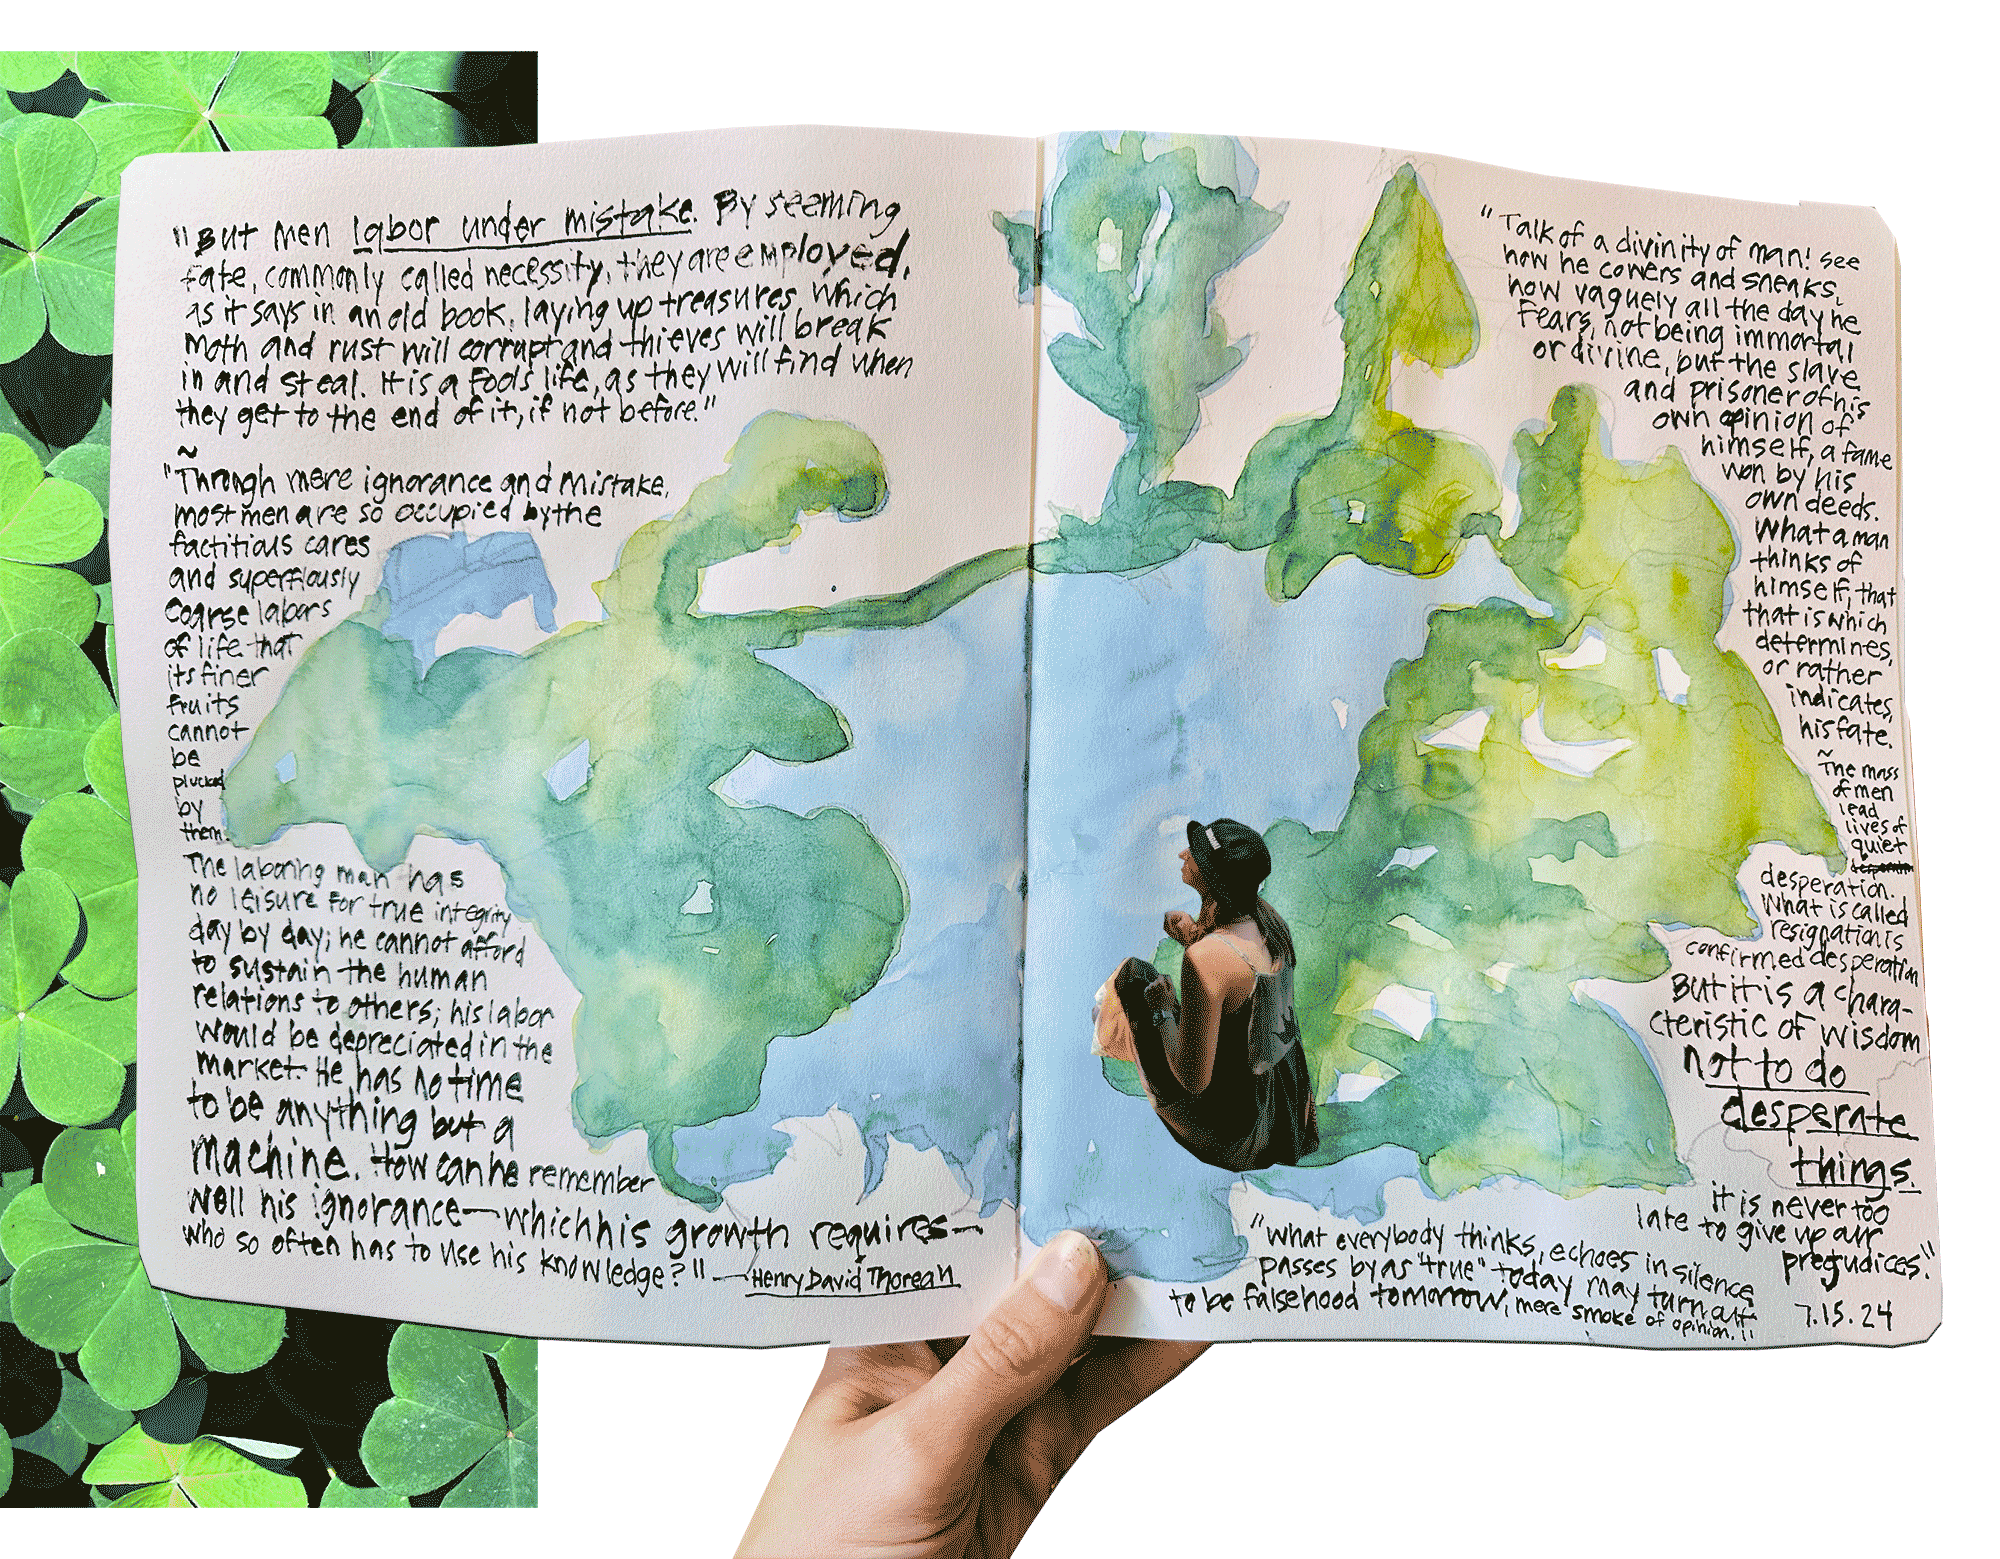 "But men labor under mistake. By seeming
fate, commonly called necessity, they are employed,
as it says in an old book, laying up treasures which
moth and rust will corrupt and thieves will break
in and steal. It is a fools life, as they will find when
they get to the end of it, if not before."
~
"Through mere ignorance and mistake,
most men are so occupied by the
factitious cares
and superfluously
coarse labors
of life that
its finer
fruits
cannot
be
plucked
by
them.
The laboring man has
no leisure for true integrity
day by day; he cannot afford
to sustain the human
relations to others; his labor
would be depreciated in the
market. He has no time
to be anything but a
machine. How can he remember
well his ignorance—which his growth requires—
who so often has to use his knowledge?" —Henry David Thoreau
"Talk of a divinity of man! see
how he cowers and sneaks,
how vaguely all the day he
Fears, not being immortal
or divine, but the slave
and prisoner of his
own opinion of
himself, a fame
won by his
own deeds.
What a man
thinks of
himself, that
that is which
determines,
or rather
indicates,
his fate.
~
The mass
of men
lead
lives of
quiet
desperation.
What is called
resignation is
confirmed desperation
But it is a chara-
cteristic of wisdom
not to do
desperate
things.
it is never too
late to give up our
pregudices."
"What everybody thinks, echoes in silence
passes by as "true" today may turn out
to be falsehood tomorrow, mere smoke of opinion."
7.15.24